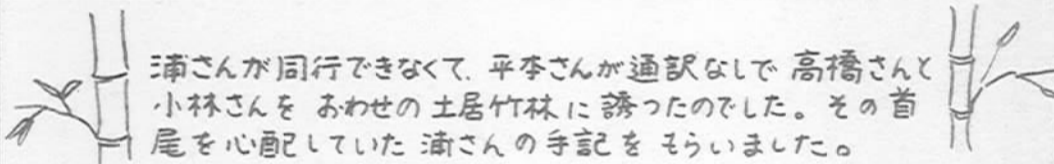 浦さんが同行できなくて、平本さんが通訳なしで 高橋さんと
小林さんを おわせの土居竹林に誘ったのでした。その首
尾を心配していた 浦さんの手記を もらいました。